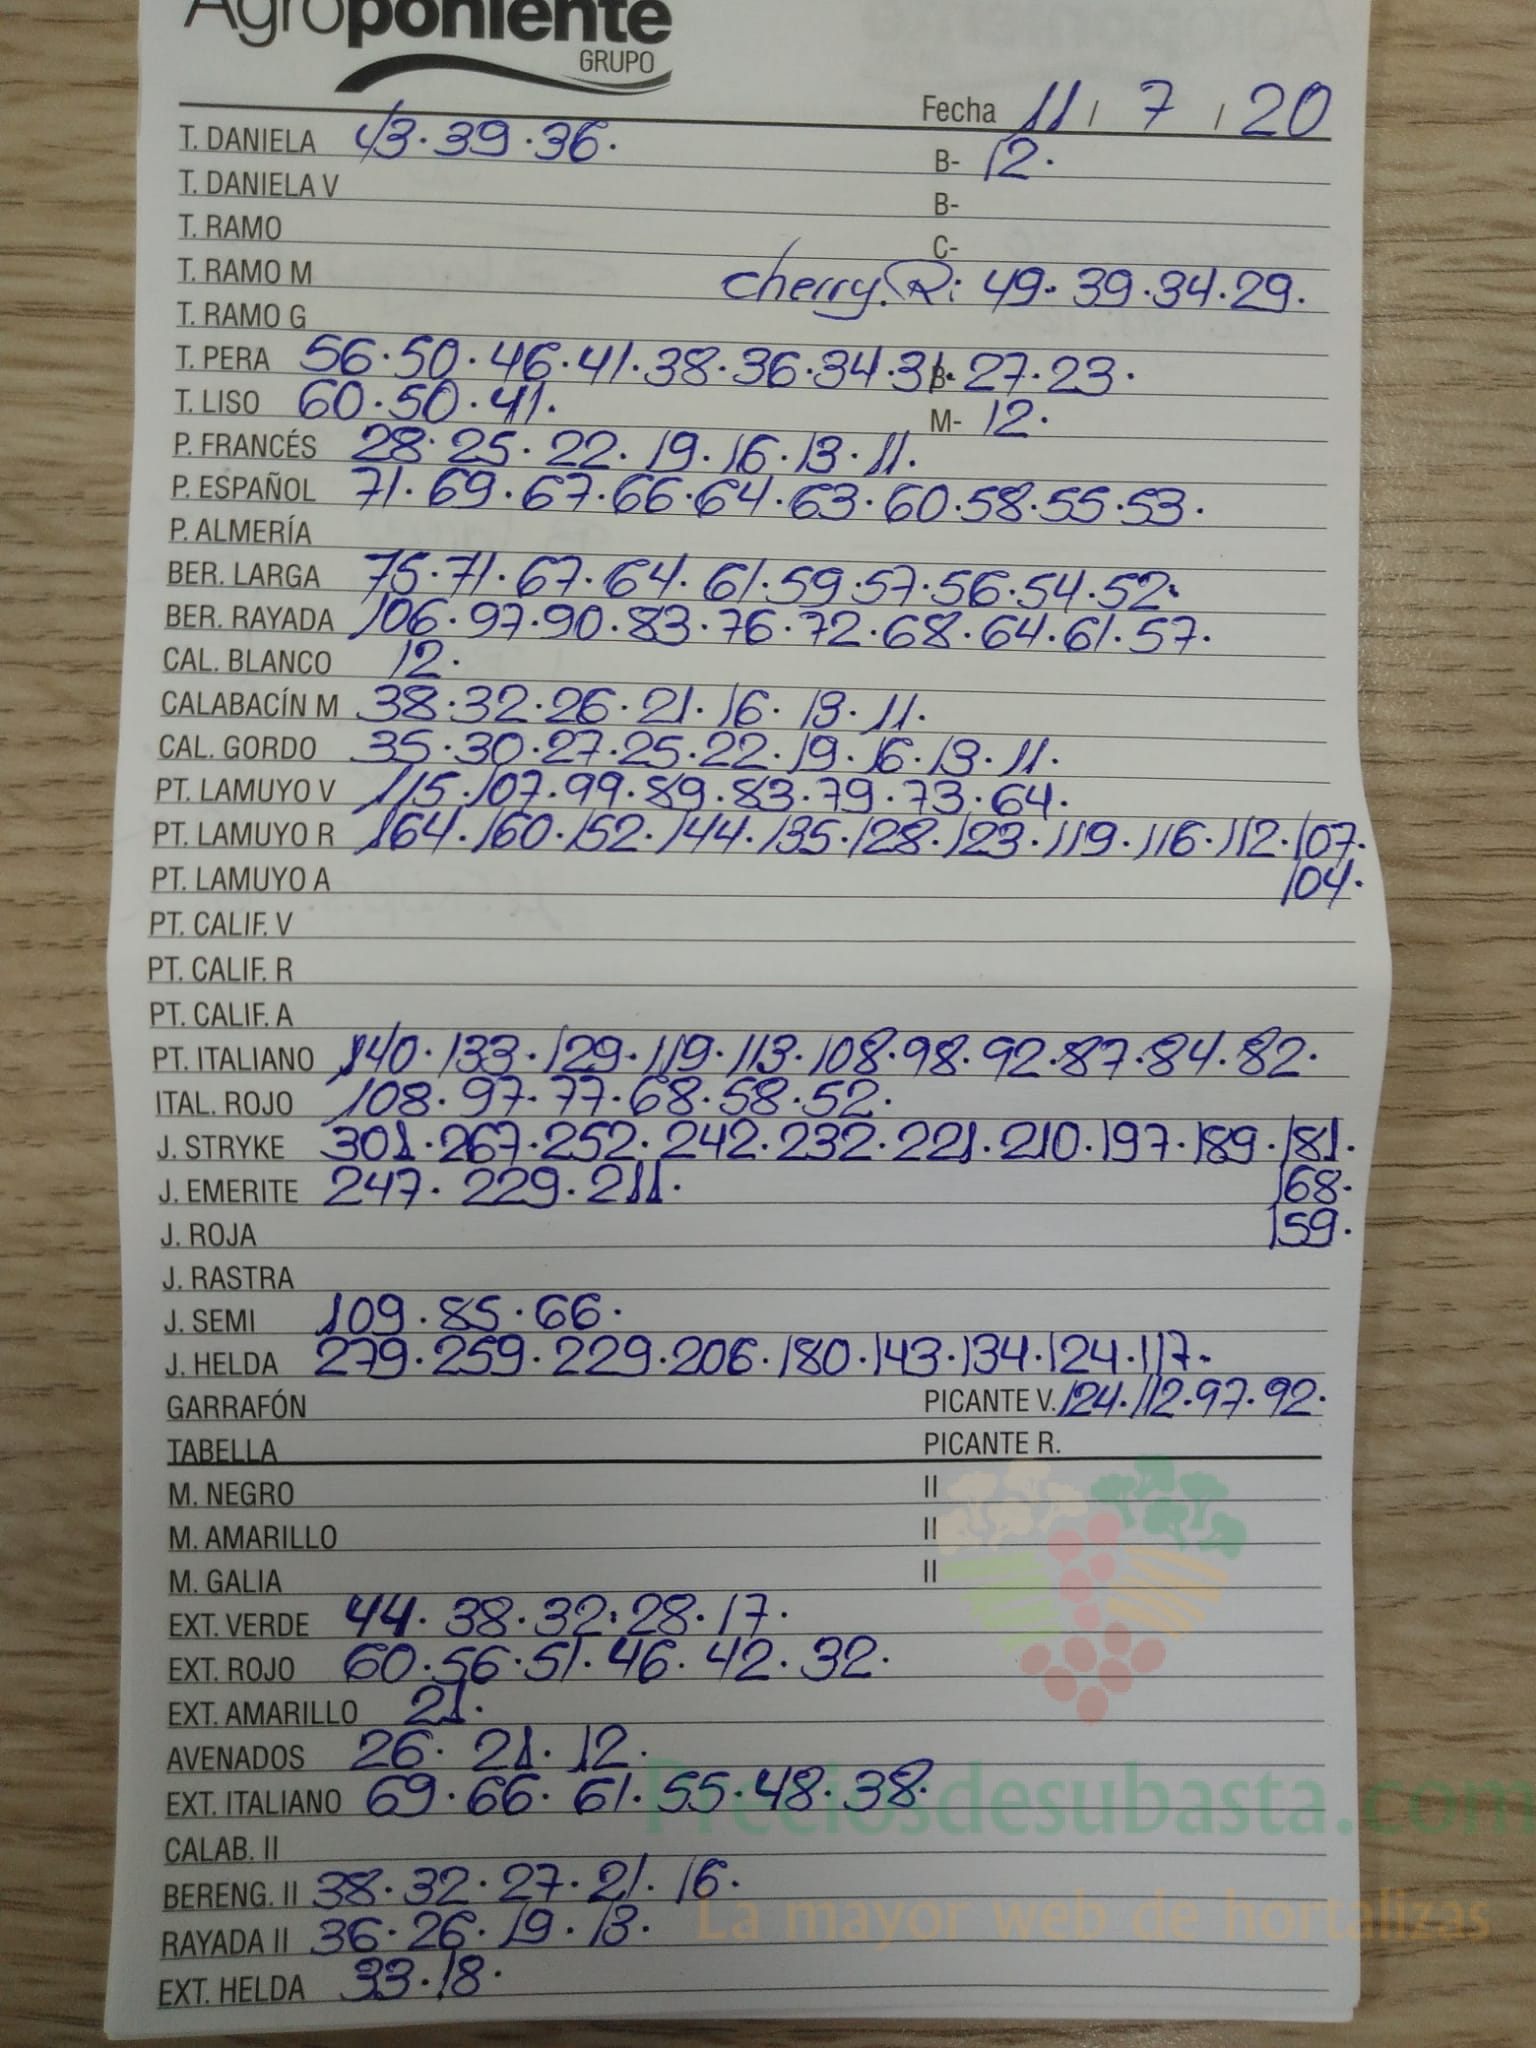 Agroponiente
GRUPO
Fecha 11 / 7 / 20
T. DANIELA 43·39·36· B- 12·
T. DANIELA V B-
T. RAMO C-
T. RAMO M cherry.R: 49·39·34·29.
T. RAMO G
T. PERA 56·50·46·41·38·36·34·31· B- 27·23·
T. LISO 60·50·41. M- 12·
P. FRANCÉS 28·25·22·19·16·13·11.
P. ESPAÑOL 71·69·67·66·64·63·60·58·55·53·
P. ALMERÍA
BER. LARGA 75·71·67·64·61·59·57·56·54·52·
BER. RAYADA 106·97·90·83·76·72·68·64·61·57·
CAL. BLANCO 12·
CALABACÍN M 38·32·26·21·16·13·11.
CAL. GORDO 35·30·27·25·22·19·16·13·11.
PT. LAMUYO V 115·107·99·89·83·79·73·64·
PT. LAMUYO R 164·160·152·144·135·128·123·119·116·112·107·
PT. LAMUYO A 104·
PT. CALIF. V
PT. CALIF. R
PT. CALIF. A
PT. ITALIANO 140·133·129·119·113·108·98·92·87·84·82·
ITAL. ROJO 108·97·77·68·58·52·
J. STRYKE 301·267·252·242·232·221·210·197·189·181·
J. EMERITE 247·229·211· 168·
J. ROJA 159·
J. RASTRA
J. SEMI 109·85·66·
J. HELDA 279·259·229·206·180·143·134·124·117·
GARRAFÓN PICANTE V. 124·112·97·92·
TABELLA PICANTE R.
M. NEGRO II
M. AMARILLO II
M. GALIA II
EXT. VERDE 44·38·32·28·17·
EXT. ROJO 60·56·51·46·42·32·
EXT. AMARILLO 21·
AVENADOS 26·21·12·
Preciosdesubasta.com
EXT. ITALIANO 69·66·61·55·48·38·
CALAB. II
BERENG. II 38·32·27·21·16·
La mayor web de hortalizas
RAYADA II 36·26·19·13·
EXT. HELDA 33·18·